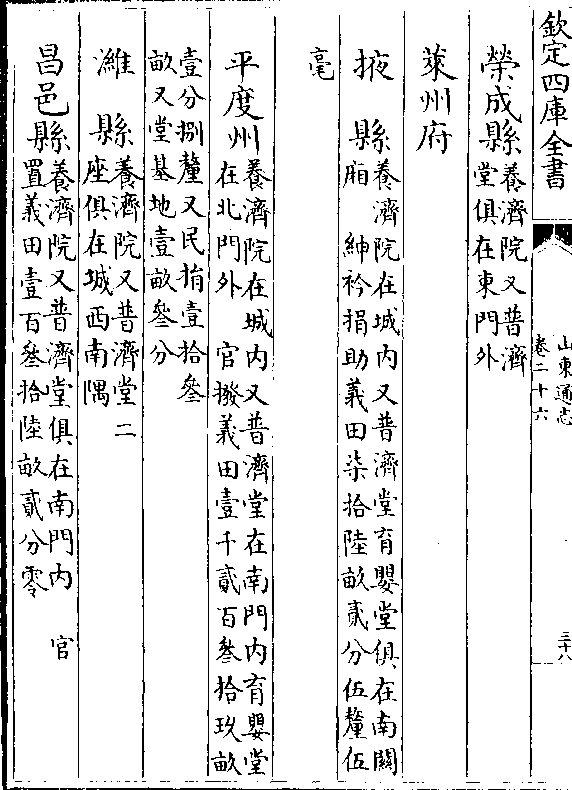 欽定四庫全書
山東通志
卷二十六
三十八
榮成縣養濟院又普濟
堂俱在東門外
萊州府
掖縣養濟院在城内又普濟堂育嬰堂俱在南關
廂 紳衿捐助義田柒拾陸畝貳分伍釐伍
毫
平度州養濟院在城内又普濟堂在南門内育嬰堂
在北門外 官撥義田壹千貳百叄拾玖畝
壹分捌釐又民捐壹拾叄
畝又堂基地壹畝叄分
濰縣養濟院又普濟堂二
座俱在城西南隅
昌邑縣養濟院又普濟堂俱在南門内 官
置義田壹百叄拾陸畝貳分零